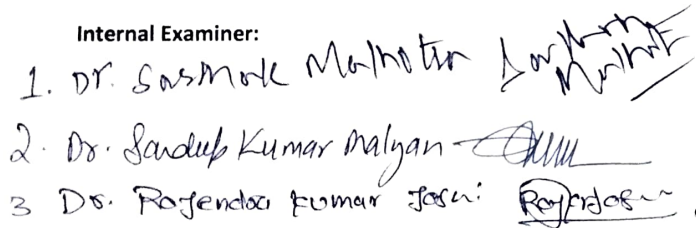 Internal Examiner:
1. Dr. Malhotra
2. Dr. Sandeep Kumar Malyan
3 Dr. Rajendra Kumar Joshi